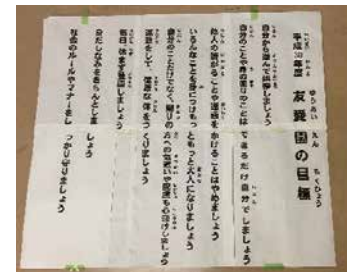 平成30年度 友愛園の目標
自分から進んで挨拶しましょう
自分のことや身の回りのことはできるだけ自分でしましょう
他人の嫌がることや迷惑をかけることはやめましょう
いろんなことを身につけもっともっと大人になりましょう
自分のことだけでなく、周りの方への気遣いや配慮も心
運動をして、健康な体をつくりましょう
毎日、休まず登園しましょう
身だしなみをきちんとしましょう
社会のルールやマナーをしっかり守りましょう